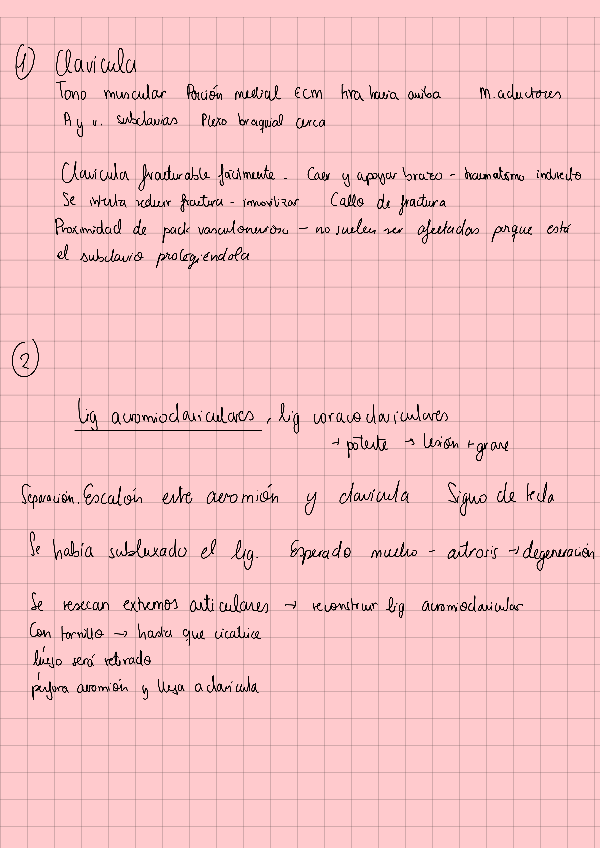 1 Clavicula
Tono muscular Porción medial ECM tira hacia arriba M. aductores
A y v. subclavias Plexo braquial cerca
Clavicula fracturable facilmente - Caer y apoyar brazo - traumatismo indirecto
Se intenta reducir fractura - inmovilizar Callo de fractura
Proximidad de pack vasculonervioso - no suelen ser afectadas porque está
el subclavio protegiéndola
2
lig acromioclaviculares, lig coracoclaviculares
+ potente → lesión + grave
Separación. Escalón entre acromión y clavicula Signo de tecla
Se había subluxado el lig. Esperado mucho - artrosis → degeneración
Se resecan extremos articulares → reconstruir lig acromioclavicular
Con tornillo → hasta que cicatrice
luego será retirado
perfora acromión y llega a clavicula